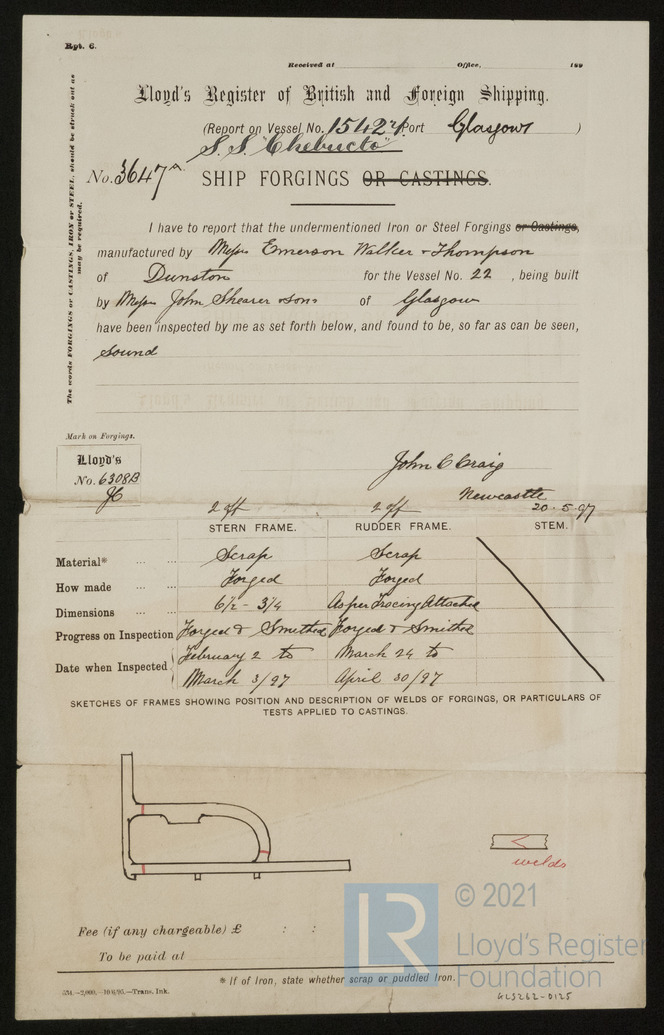 Rpt. 6.
Received at Office, 189
Lloyd's Register of British and Foreign Shipping.
(Report on Vessel No. 15424 Port Glasgow )
S.S. "Chebucto"
No. 3647A SHIP FORGINGS OR CASTINGS.
The words FORGINGS or CASTINGS, IRON or STEEL, should be struck out as may be required.
I have to report that the undermentioned Iron or Steel Forgings or Castings,
manufactured by Messrs Emerson Walker & Thompson
of Dunston for the Vessel No. 22 , being built
by Messrs John Shearer & Sons of Glasgow
have been inspected by me as set forth below, and found to be, so far as can be seen,
sound
Mark on Forgings.
Lloyd's
No. 6308B
JC
John C Craig
Newcastle
20-5-97
2 off 2 off
STERN FRAME. RUDDER FRAME. STEM.
Material* ... ... Scrap Scrap
How made ... ... Forged Forged
Dimensions ... ... 6½ - 3¼ As per Tracing Attached
Progress on Inspection Forged & Smithed Forged & Smithed
Date when Inspected February 2 to March 3/97 March 24 to April 30/97
SKETCHES OF FRAMES SHOWING POSITION AND DESCRIPTION OF WELDS OF FORGINGS, OR PARTICULARS OF
TESTS APPLIED TO CASTINGS.
welds
Fee (if any chargeable) £ : :
To be paid at
* If of Iron, state whether scrap or puddled Iron.
—2,000.—10/6/95.—Trans. Ink.
LR
© 2021
Lloyd's Register
Foundation
GLS262-0125